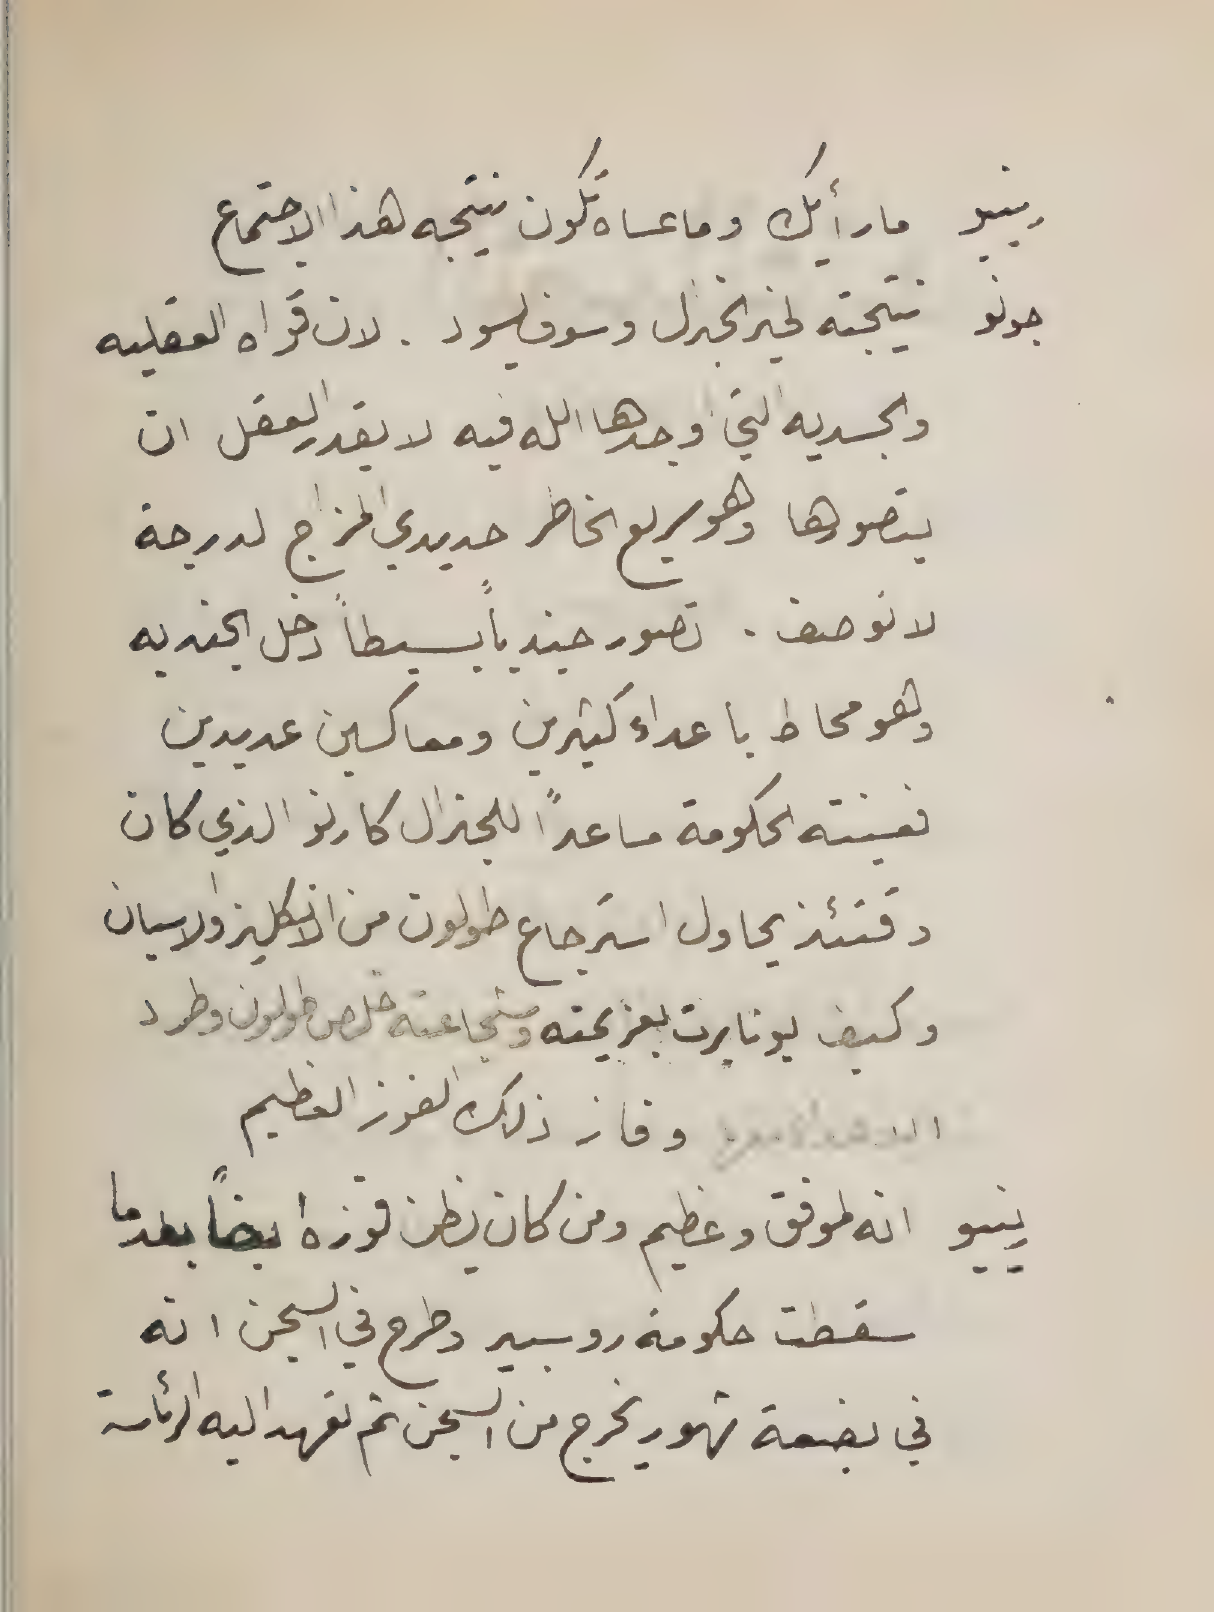 رينيو ما رأيك وما عساه تكون نتيجه هذا الاجتماع
جونو نتيجته لخير الجنرل وسوف يسود . لان قواه العقليه
والجسديه التي اوجدها الله فيه لا يقدر العقل ان
يتصورها وهو سريع الخاطر حديدي المزاج لدرجة
لا توصف . تصور جنديا بسيطاً دخل الجنديه
وهو محاط باعداء كثيرين ومعاكسين عديدين
فعينته الحكومة مساعداً للجنرال كارتو الذي كان
وقتئذ يحاول استرجاع طولون من الانكليز والاسبان
وكيف بونابرت بعزيمته وشجاعته خلص طولون وطرد
وفاز ذلك الفوز العظيم
رينيو انه لموفق وعظيم ومن كان يظن فوزه ايضاً بعدما
سقطت حكومة روبسبير وطرح في السجن انه
في بضعة شهور يخرج من السجن ثم تعهد اليه الرئاسة